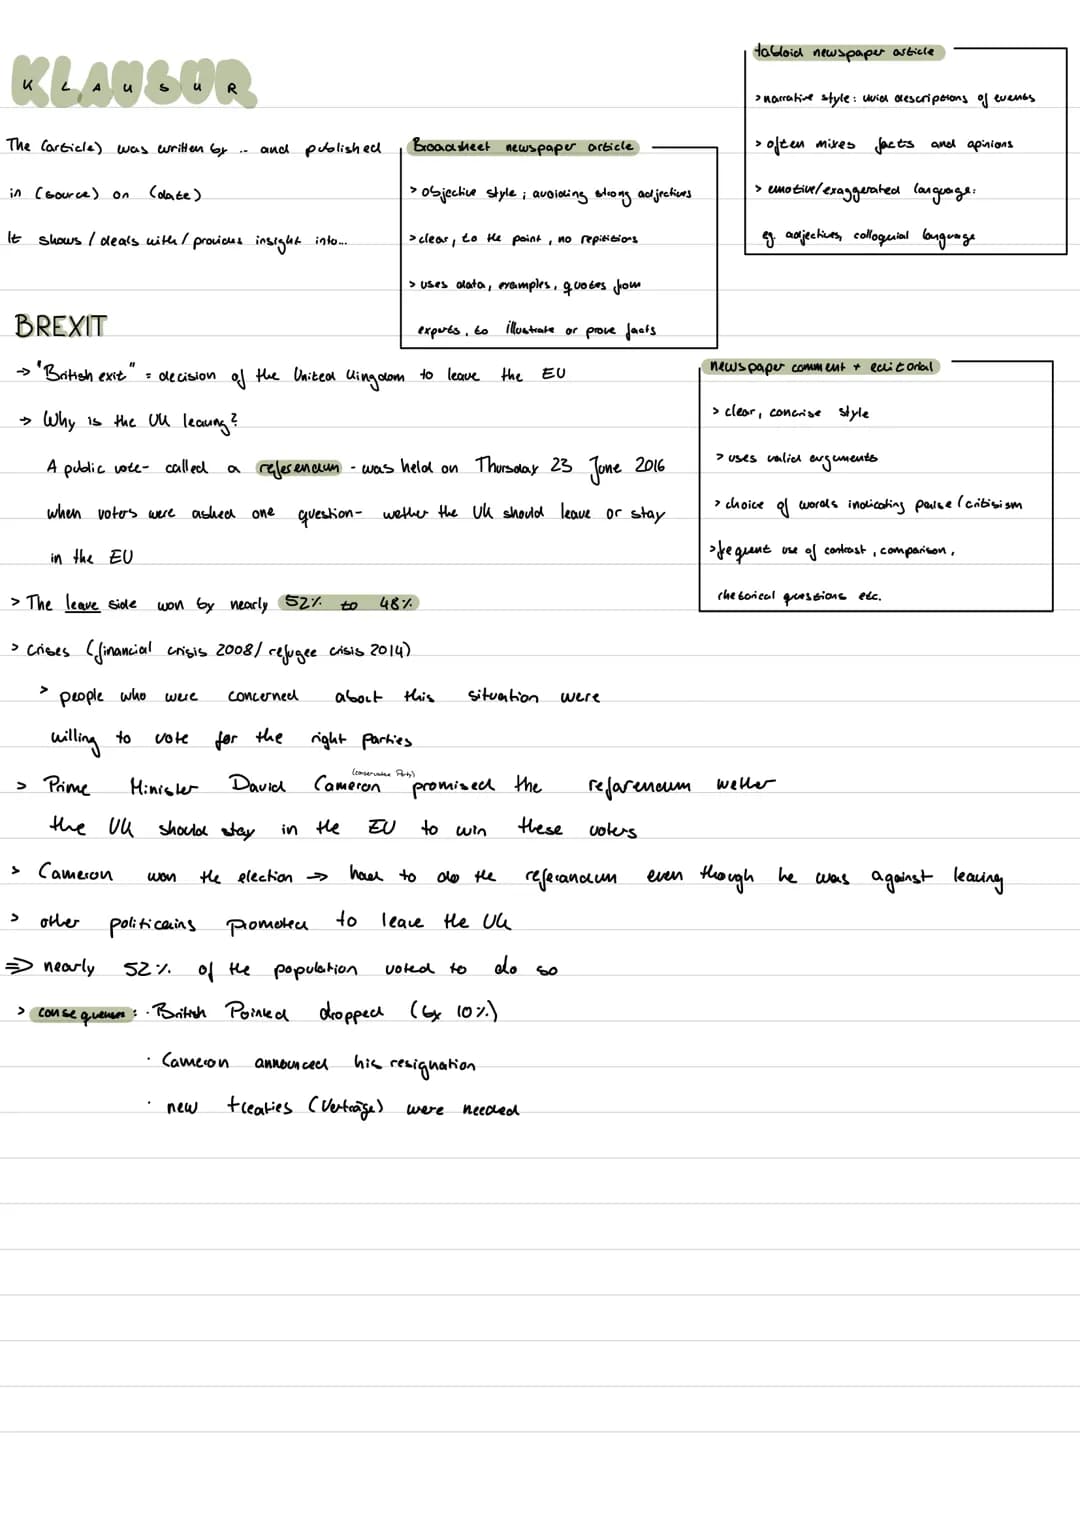 KLAUSUR
The (article) was written by .. and published
in (source) on (date)
It shows / deals with / provides insight into...
Broadsheet newspaper article
> objective style ; avoiding strong adjectives
> clear, to the point, no repititions
> uses data, examples, quotes from
experts, to illustrate or prove facts
tabloid newspaper article
> narrative style: vivid descriptions of events
> often mixes facts and opinions
> emotive/exaggerated language:
eg. adjectives, colloquial language
newspaper comment + editorial
> clear, concrise style
> uses valid arguments
> choice of words indicating paise / critisism
> frequent use of contrast, comparison,
rhetorical questions etc.
BREXIT
→ "British exit" = decision of the United Kingdom to leave the EU
→ Why is the UK leaving?
A public vote- called a referendum - was held on Thursday 23 June 2016
when voters were asked one question- wether the UK should leave or stay
in the EU
> The leave side won by nearly 52% to 48%
> crises (financial crisis 2008/ refugee crisis 2014)
> people who were concerned about this situation were
willing to vote for the right parties
> Prime Minister David Cameron (conservative Party) promised the referendum wether
the UK should stay in the EU to win these voters
> Cameron won the election → had to do the referandum even though he was against leaving
> other politicains promoted to leave the UK
⇒ nearly 52% of the population voted to do so
> consequenses : · British Poinled dropped (by 10%)
· Cameron announced his resignation
· new treaties (Verträge) were needed